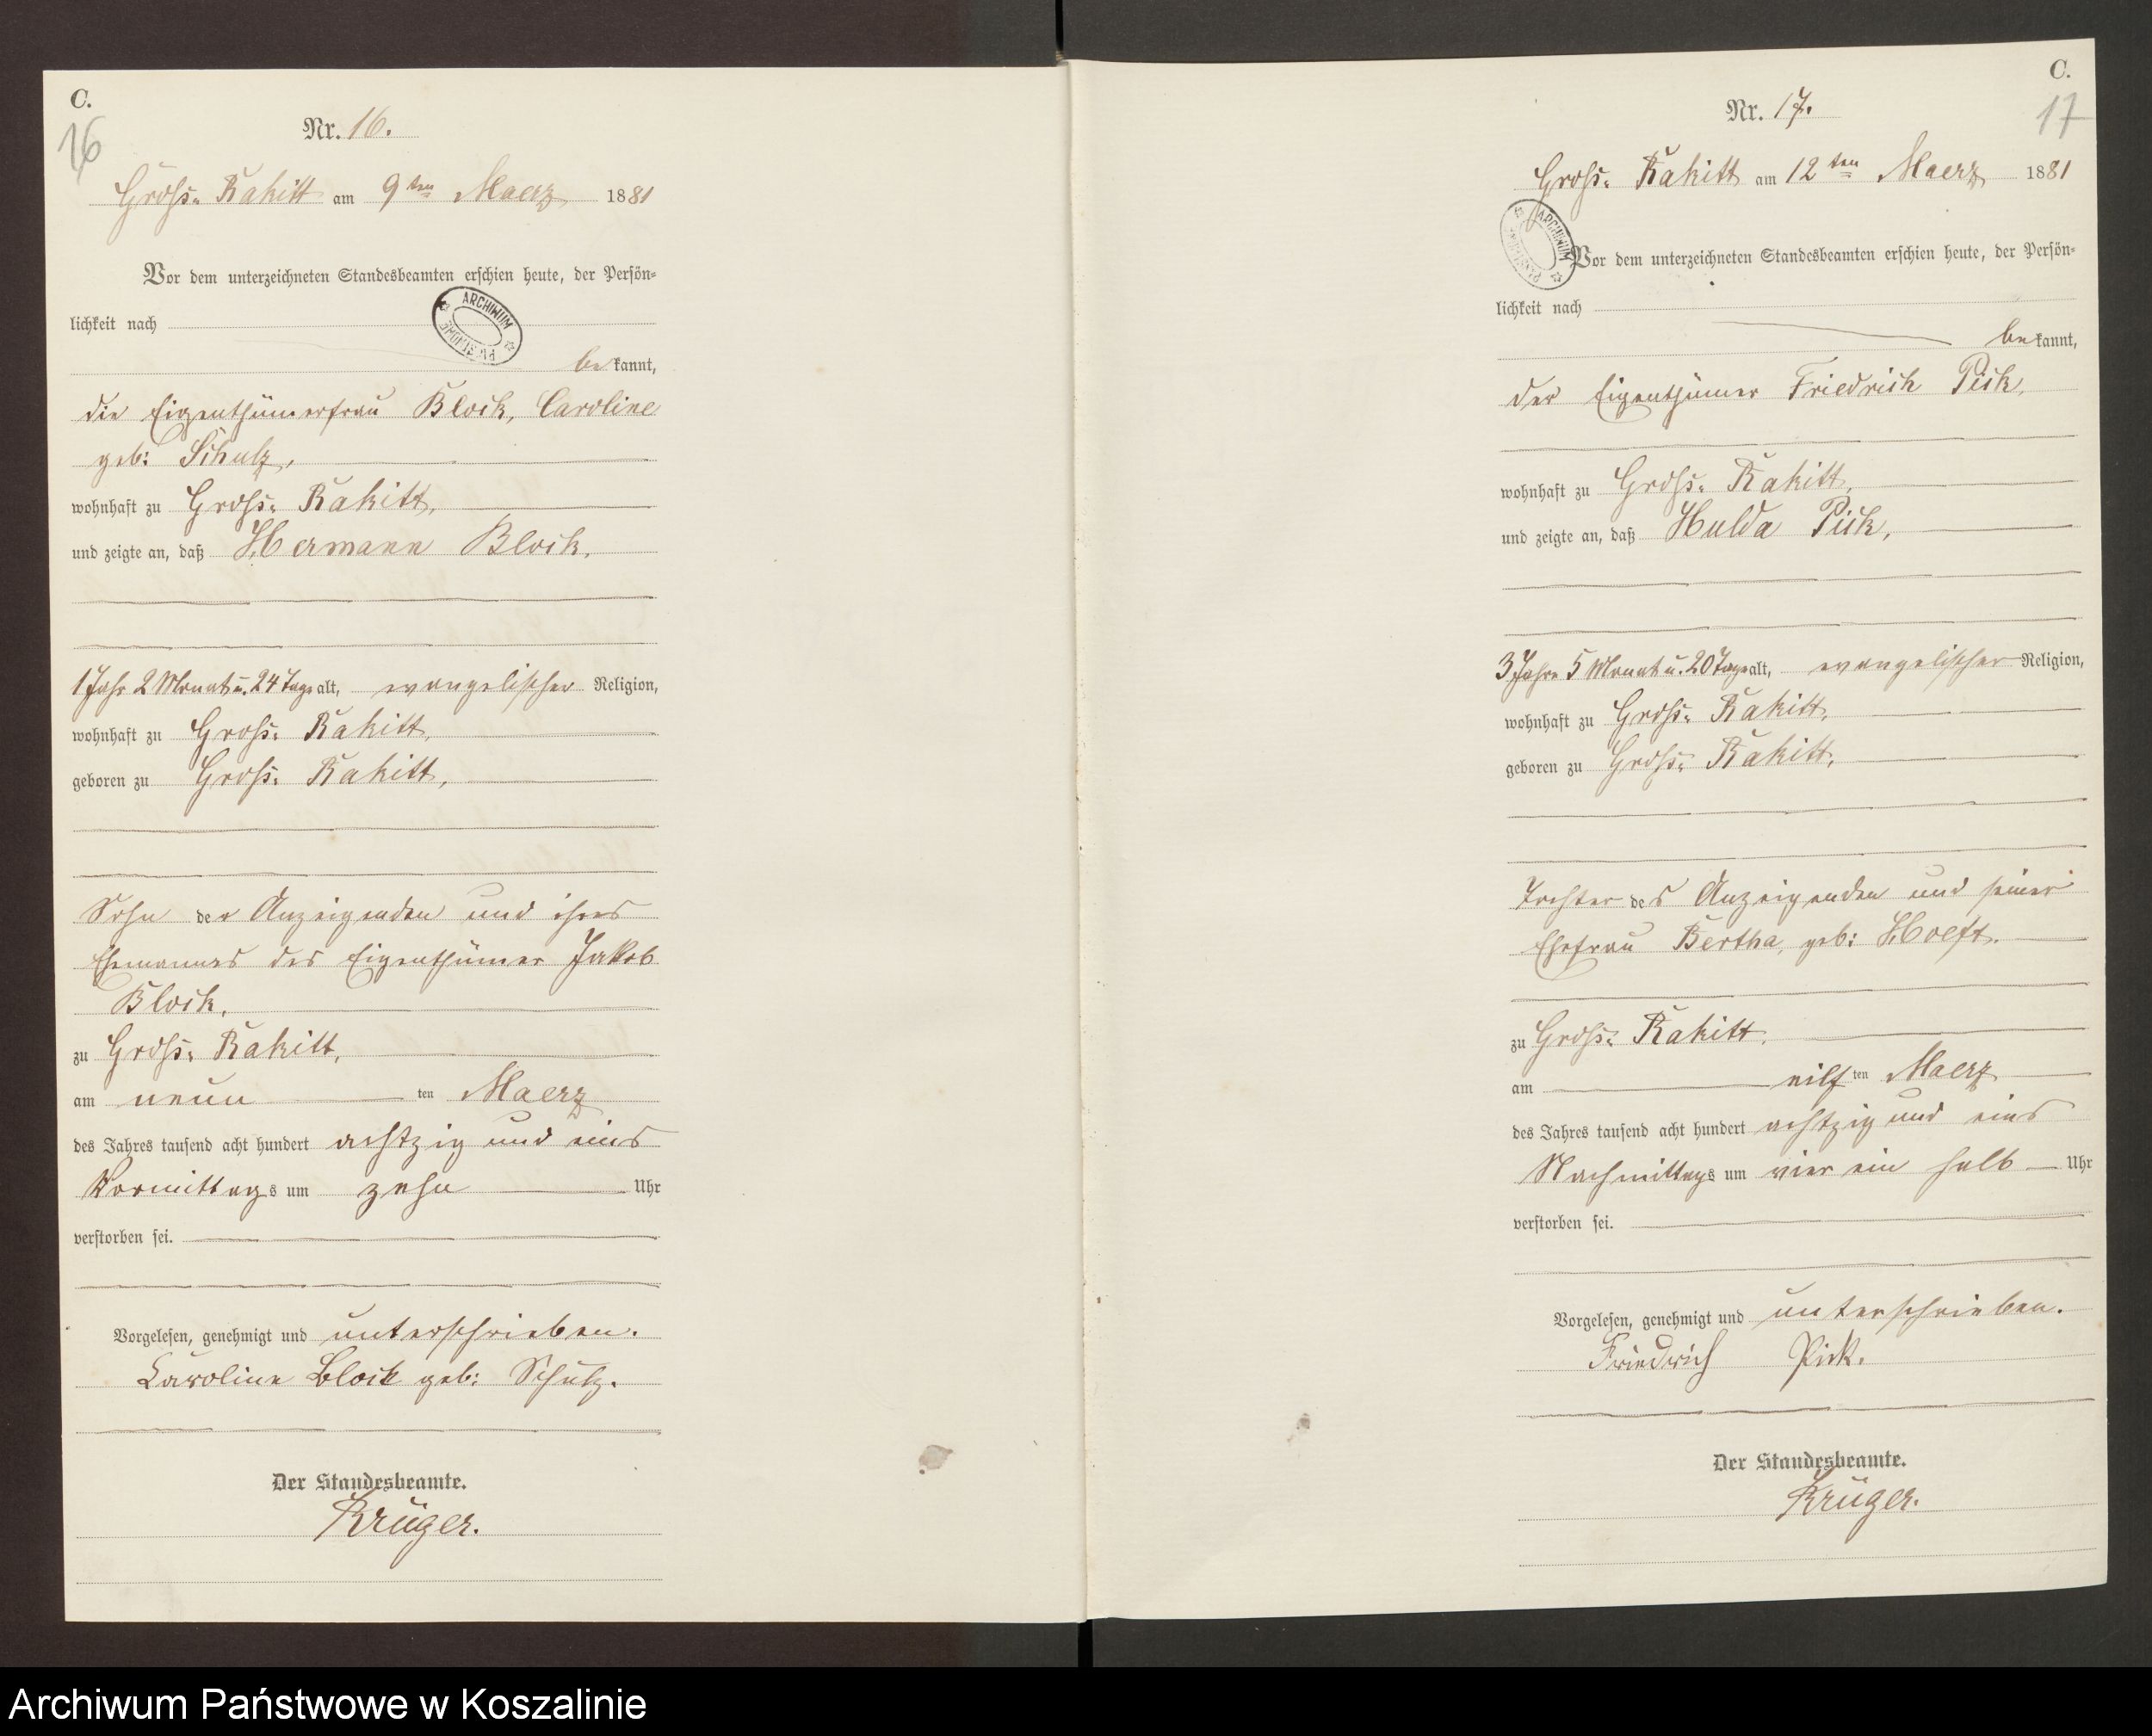 C.
16
Nr. 16.
Gross-Rakitt am 9ten Maerz 1881
Vor dem unterzeichneten Standesbeamten erschien heute, der Persön-
lichkeit nach
ARCHIWUM
bekannt,
die Eigenthümerfrau Block, Caroline
geb: Schulz,
wohnhaft zu Gross-Rakitt,
und zeigte an, daß Hermann Block,
1 Jahr 2 Monat u. 24 Tage alt, evangelischer Religion,
wohnhaft zu Gross-Rakitt,
geboren zu Gross-Rakitt,
Sohn der Anzeigenden und ihres
Ehemannes des Eigenthümer Jakob
Block,
zu Gross-Rakitt,
am neun ten Maerz
des Jahres tausend acht hundert achtzig und eins
Vormittags um zehn Uhr
verstorben sei.
Vorgelesen, genehmigt und unterschrieben.
Caroline Block geb: Schulz.
Der Standesbeamte.
Krüger.
C.
17
Nr. 17.
Gross-Rakitt am 12ten Maerz 1881
ARCHIWUM
Vor dem unterzeichneten Standesbeamten erschien heute, der Persön-
lichkeit nach
bekannt,
der Eigenthümer Friedrich Pick,
wohnhaft zu Gross-Rakitt,
und zeigte an, daß Hulda Pick,
3 Jahre 5 Monat u. 20 Tage alt, evangelischer Religion,
wohnhaft zu Gross-Rakitt,
geboren zu Gross-Rakitt,
Tochter des Anzeigenden und seiner
Ehefrau Bertha, geb: Hoeft.
zu Gross-Rakitt,
am eilf ten Maerz
des Jahres tausend acht hundert achtzig und eins
Nachmittags um vier ein halb Uhr
verstorben sei.
Vorgelesen, genehmigt und unterschrieben.
Friedrich Pick.
Der Standesbeamte.
Krüger.
Archiwum Państwowe w Koszalinie